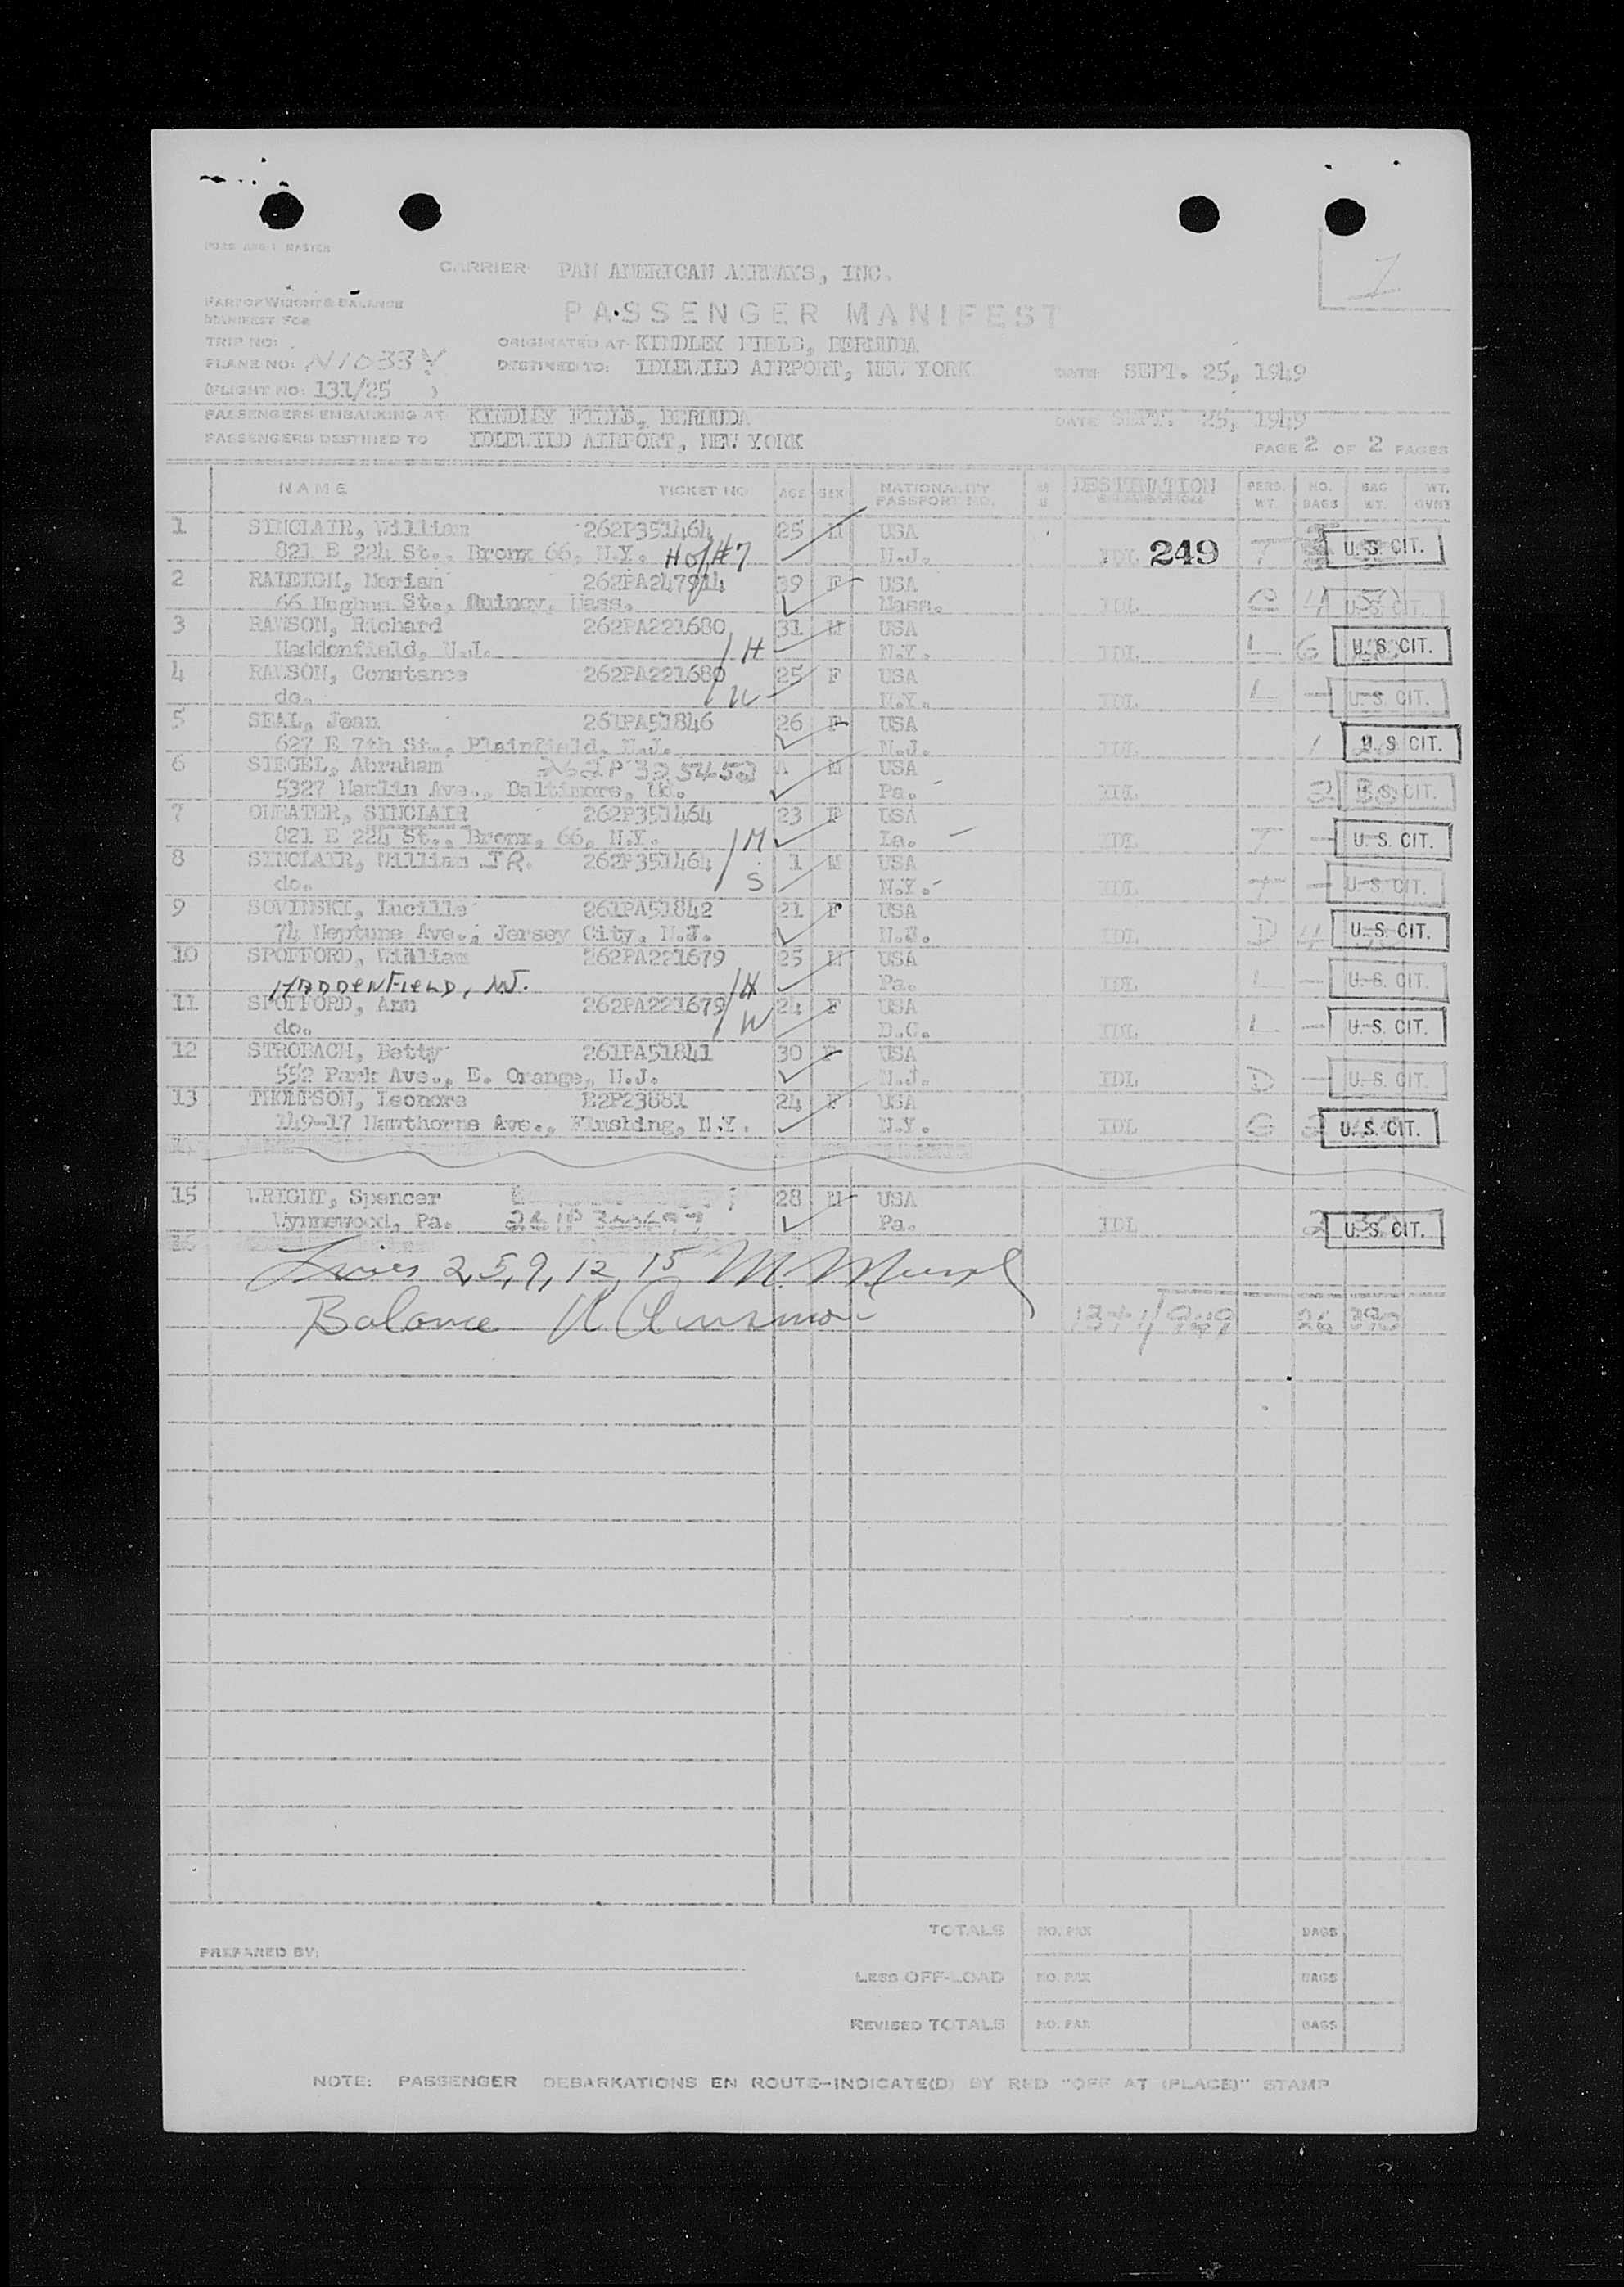 CARRIER: PAN AMERICAN AIRWAYS, INC.
PART OF WEIGHT & BALANCE
MANIFEST FOR
PASSENGER MANIFEST
TRIP NO:
ORIGINATED AT: KINDLEY FIELD, BERMUDA
PLANE NO: N1033V
DESTINED TO: IDLEWILD AIRPORT, NEW YORK DATE: SEPT. 25, 1949
(FLIGHT NO: 131/25 )
PASSENGERS EMBARKING AT KINDLEY FIELD, BERMUDA DATE SEPT. 25, 1949
PASSENGERS DESTINED TO IDLEWILD AIRPORT, NEW YORK PAGE 2 OF 2 PAGES
NAME TICKET NO AGE SEX NATIONALITY PASSPORT NO. DESTINATION PERS. WT. NO. BAGS BAG WT. WT. GVNT
1 SINCLAIR, William 262P351464 25 M USA
821 E 224 St., Bronx 66, N.Y. H of #7 N.J. IDL 249 T U.S. CIT.
2 RALEIGH, Mariam 262PA247914 39 F USA
66 Hughes St., Quincy, Mass. Mass. IDL 4 U.S. CIT.
3 RAWSON, Richard 262PA221680 31 M USA
Haddonfield, N.J. H N.Y. IDL L 6 U.S. CIT.
4 RAWSON, Constance 262PA221680 25 F USA
do. W N.Y. IDL L — U.S. CIT.
5 SEAL, Jean 261PA51846 26 F USA
627 E 7th St., Plainfield, N.J. N.J. IDL 1 U.S. CIT.
6 SIEGEL, Abraham 262P325453 A M USA
5327 Hamlin Ave., Baltimore, Md. Pa. IDL 2 U.S. CIT.
7 ONEATER, SINCLAIR 262P351464 23 F USA
821 E 224 St., Bronx, 66, N.Y. M La. IDL T — U.S. CIT.
8 SINCLAIR, William JR. 262P351464 1 M USA
do. S N.Y. IDL T — U.S. CIT.
9 SOVINSKI, Lucille 261PA51842 21 F USA
74 Neptune Ave., Jersey City, N.J. N.J. IDL D 4 U.S. CIT.
10 SPOFFORD, William 262PA221679 25 M USA
HADDENFIELD, NJ. H Pa. IDL L — U.S. CIT.
11 SPOFFORD, Ann 262PA221679 24 F USA
do. W D.C. IDL L — U.S. CIT.
12 STROBACH, Betty 261PA51841 30 F USA
552 Park Ave., E. Orange, N.J. N.J. IDL D — U.S. CIT.
13 THOMPSON, Leonora B2P23681 24 F USA
149-17 Hawthorne Ave., Flushing, N.Y. N.Y. IDL G U.S. CIT.
15 WRIGHT, Spencer 28 M USA
Wynnewood, Pa. Pa. IDL 2 U.S. CIT.
Lines 2,5,9,12,15 M.
Balance 13+1/949 26 390
TOTALS NO. PAX BAGS
PREPARED BY:
LESS OFF-LOAD NO. PAX BAGS
REVISED TOTALS NO. PAX BAGS
NOTE: PASSENGER DEBARKATIONS EN ROUTE—INDICATE(D) BY RED "OFF AT (PLACE)" STAMP